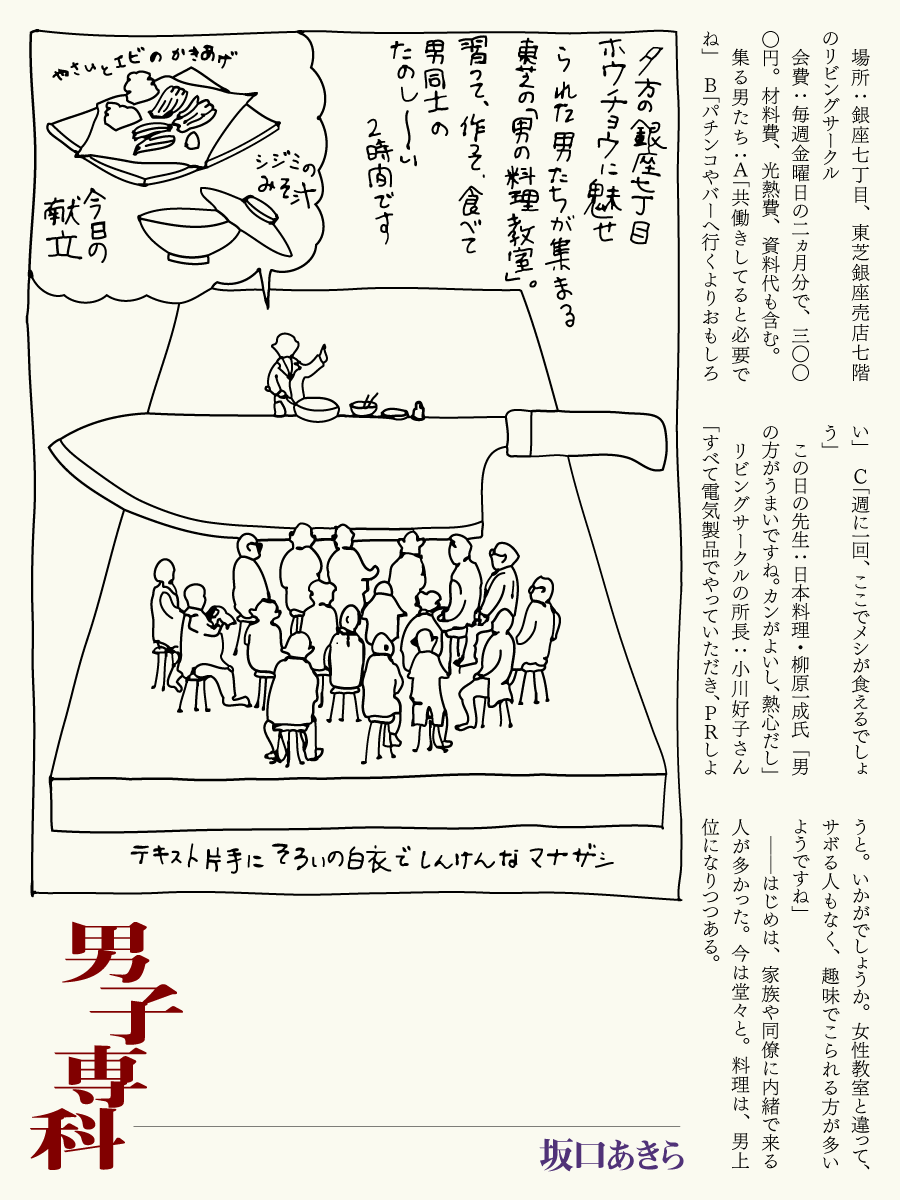 場所：銀座七丁目、東芝銀座売店七階
のリビングサークル
会費：毎週金曜日の二ヵ月分で、三〇〇
〇円。材料費、光熱費、資料代も含む。
集る男たち：A「共働きしてると必要で
ね」　B「パチンコやバーへ行くよりおもしろ
い」　C「週に一回、ここでメシが食えるでしょ
う」
この日の先生：日本料理・柳原一成氏「男
の方がうまいですね。カンがよいし、熱心だし」
リビングサークルの所長：小川好子さん
「すべて電気製品でやっていただき、PRしよ
うと。いかがでしょうか。女性教室と違って、
サボる人もなく、趣味でこられる方が多い
ようですね」
――はじめは、家族や同僚に内緒で来る
人が多かった。今は堂々と。料理は、男上
位になりつつある。
夕方の銀座七丁目
ホウチョウに魅せ
られた男たちが集まる
東芝の「男の料理教室」。
習って、作って、食べて
男同士の
たのし〜い
2時間です
やさいとエビのかきあげ
シジミの
みそ汁
今日の
献立
テキスト片手に そろいの白衣で しんけんな マナザシ
男子専科
坂口あきら